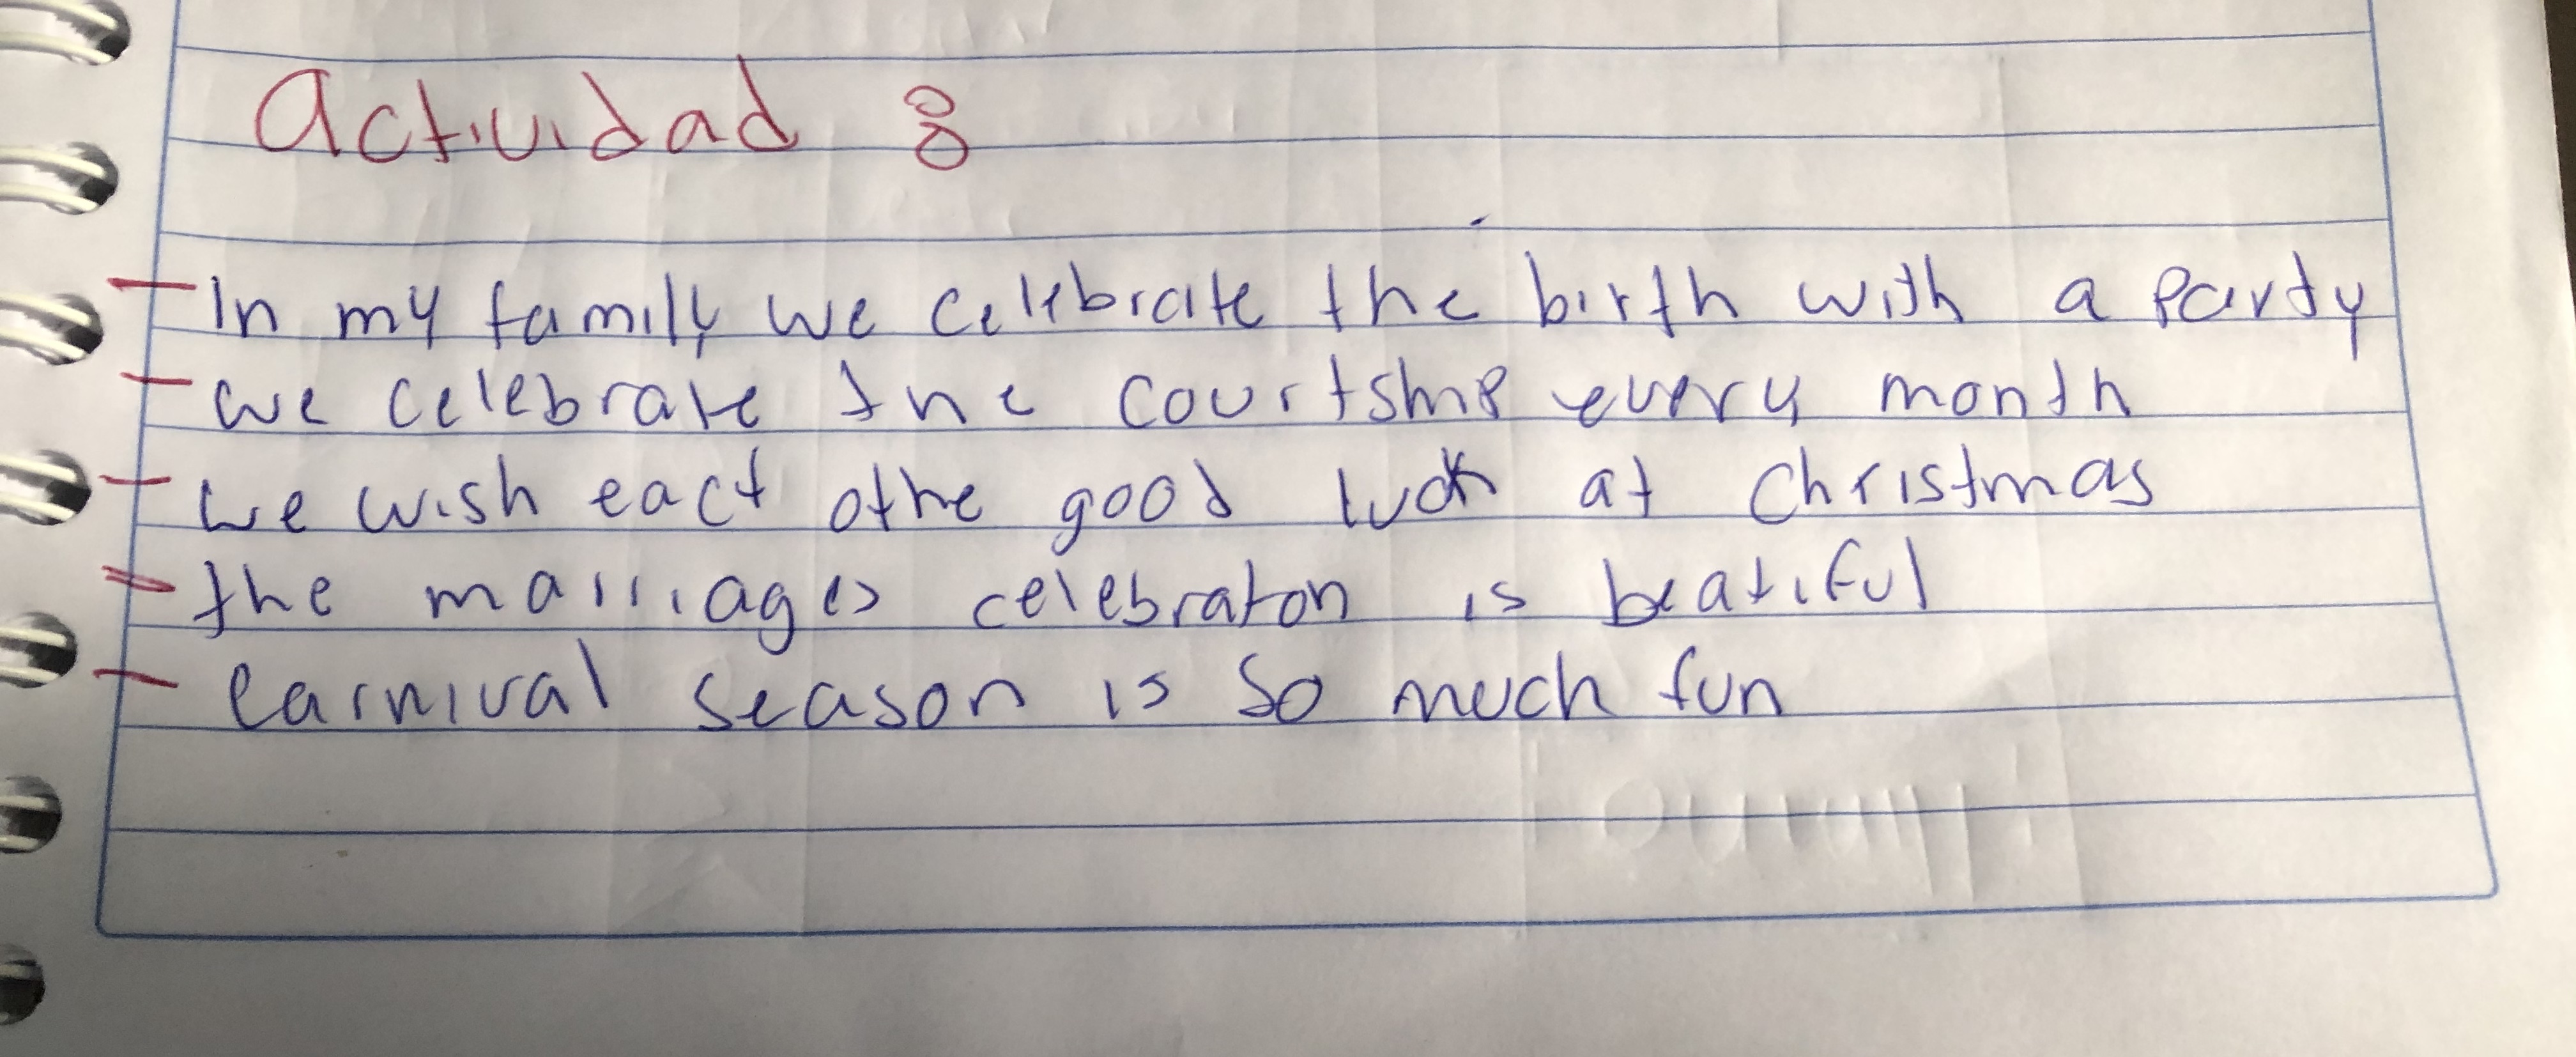 Actividad 8
- In my family we celebrate the birth with a party
- we celebrate the courtship every month
- we wish eact othe good luck at Christmas
- the marriages celebraton is beatiful
- Carnival season is so much fun